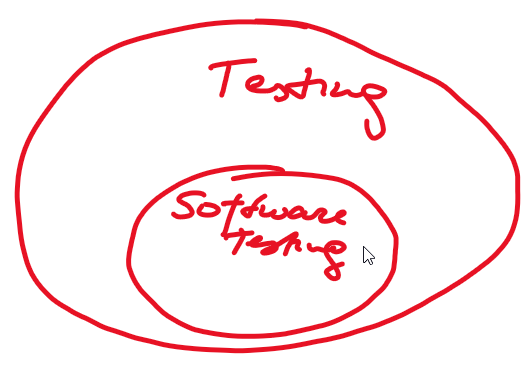 Testing
Software
Testing